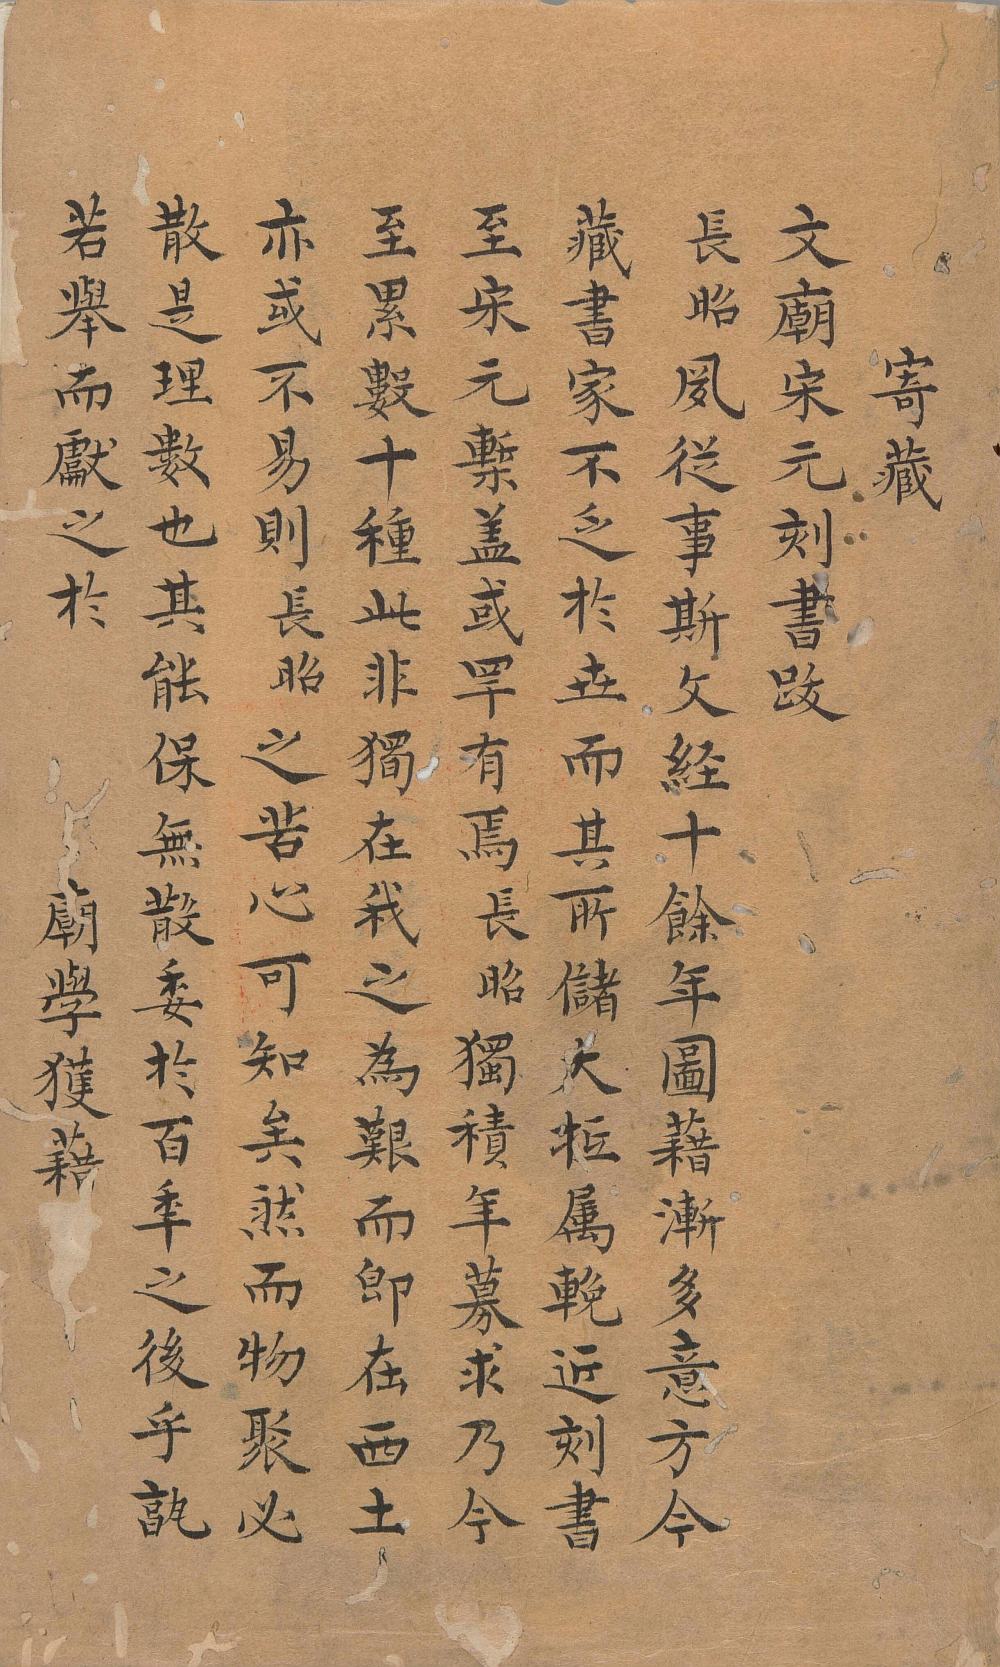 寄藏
文廟宋元刻書跋
長昭夙從事斯文経十餘年圖藉漸多意方今
藏書家不乏於世而其所儲大抵属輓近刻書
至宋元槧盖或罕有焉長昭獨積年募求乃今
至累數十種此非獨在我之為艱而即在西土
亦或不易則長昭之苦心可知矣然而物聚必
散是理數也其能保無散委於百年之後乎孰
若舉而獻之於
廟學獲藉